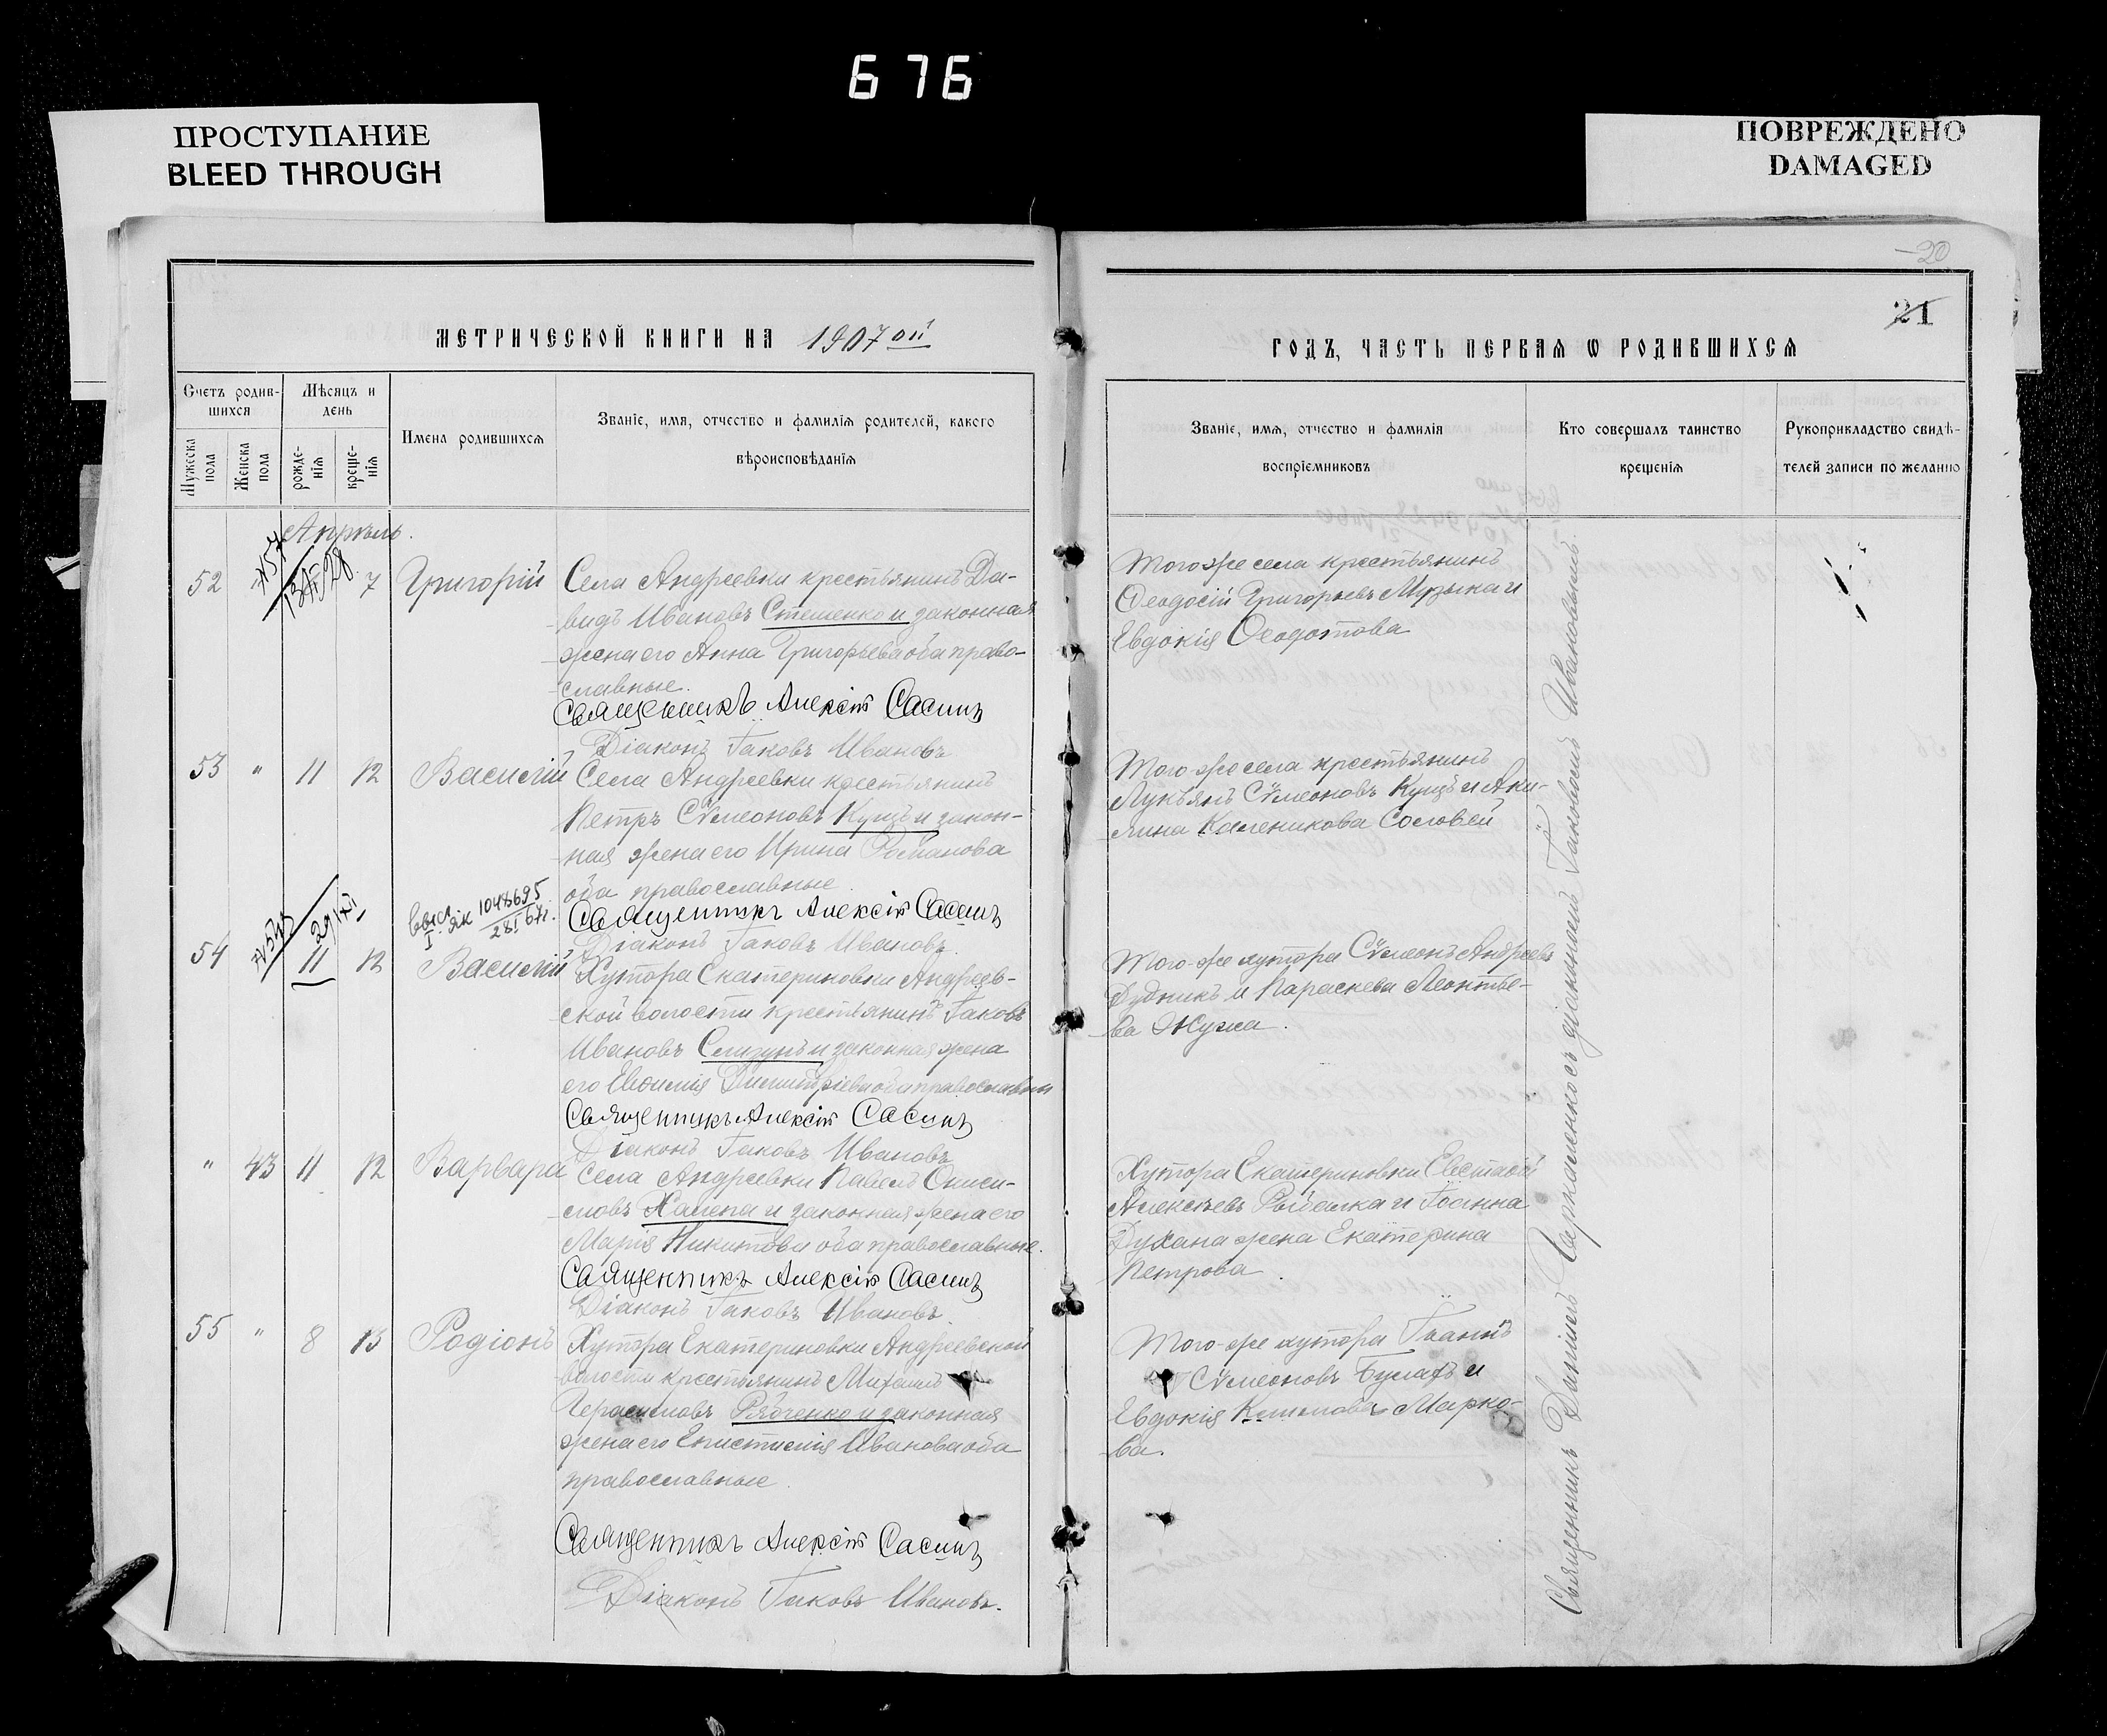 676
ПРОСТУПАНИЕ
BLEED THROUGH
ПОВРЕЖДЕНО
DAMAGED
20
21
МЕТРИЧЕСКОЙ КНИГИ НА 1907 ой
ГОДЪ, ЧАСТЬ ПЕРВАЯ Ѡ РОДИВШИХСЯ
Счетъ родив-
шихся
Мѣсяцъ и
день
Имена родившихся
Званіе, имя, отчество и фамилія родителей, какого
вѣроисповѣданія
Мужеска
пола
Женска
пола
рожде-
нія
креще-
нія
Званіе, имя, отчество и фамилія
воспріемниковъ
Кто совершалъ таинство
крещенія
Рукоприкладство свидѣ-
телей записи по желанію
Апрѣль.
52 7 Григорій
Села Андреевки крестьянинъ Да-
видъ Ивановъ Стешенко и законная
жена его Анна Григорьева оба право-
славные.
Священникъ Алексій Сасинъ
Діаконъ Іаковъ Ивановъ
Того же села крестьянинъ
Ѳеодосій Григорьевъ Музыка и
Евдокія Ѳеодотова
53 " 11 12 Василій
Села Андреевки крестьянинъ
Петръ Сѵмеоновъ Куцъ и закон-
ная жена его Ирина Романова
оба православные.
Священникъ Алексій Сасинъ
Діаконъ Іаковъ Ивановъ.
Того-же села крестьянинъ
Лукьянъ Сѵмеоновъ Куцъ и Аки-
лина Каленикова Соловей
1048695
28 I 67г.
29/XI
54 11 12 Василій
Хутора Екатериновки Андреев-
ской волости крестьянинъ Іаковъ
Ивановъ Слизунъ и законная жена
его Евѳимія Димитріева оба православные
Священникъ Алексій Сасинъ
Діаконъ Іаковъ Ивановъ
Того-же хутора Сѵмеонъ Андреевъ
Дудникъ и Параскева Леонтье-
ва Жужа.
" 43 11 12 Варвара
Села Андреевки Павелъ Ониси-
мовъ Халепа и законная жена его
Марія Никитова оба православные.
Священникъ Алексій Сасинъ
Діаконъ Іаковъ Ивановъ.
Хутора Екатериновки Евстафій
Алексѣевъ Рыбалка и Іоанна
Духана жена Екатерина
Петрова.
55 " 8 13 Родіонъ
Хутора Екатериновки Андреевской
волости крестьянинъ Михаилъ
Герасимовъ Рябченко и законная
жена его Епистимія Иванова оба
православные.
Священникъ Алексій Сасинъ
Діаконъ Іаковъ Ивановъ.
Того-же хутора Іоаннъ
Сѵмеоновъ Булахъ и
Евдокія Климова Марко-
ва.
Священникъ Даніилъ Пархоменко съ діакономъ Іаковомъ Ивановымъ.